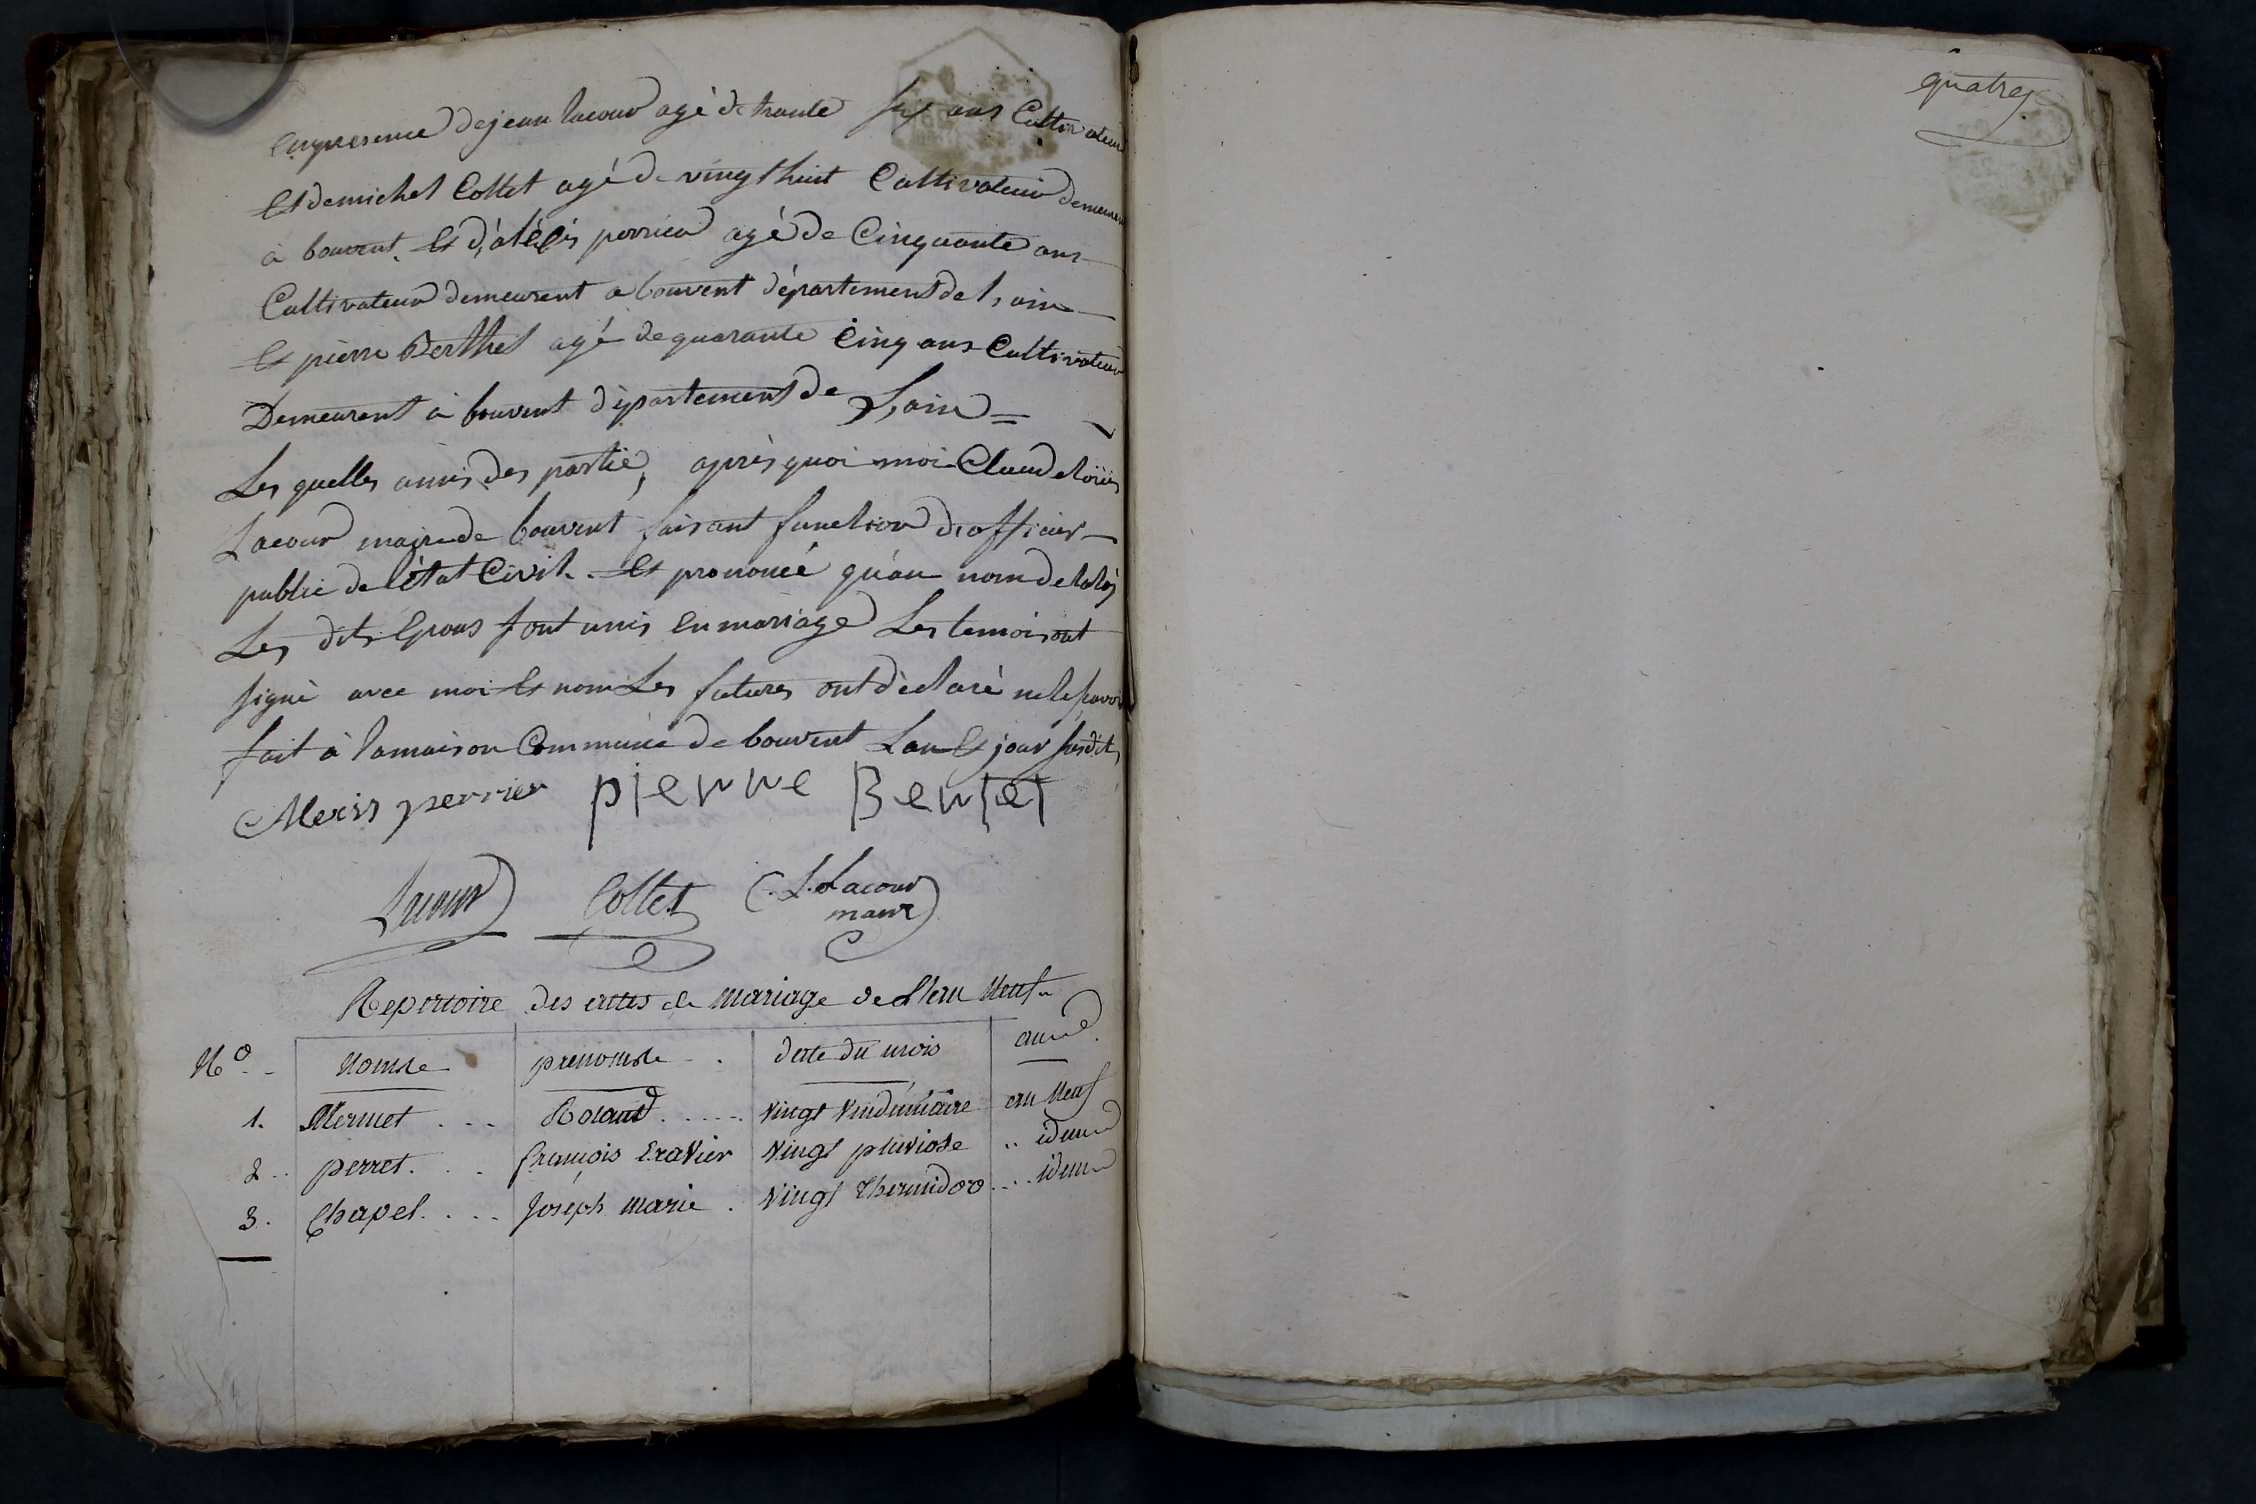 enpresence dejean lacour agé de trante six ans Cultivateur
Et demichel Collet agé de vingthuit Cultivateur demeurent
à bouvent. Et d'aléxis perrier agé de Cinquante ans
Cultivateur demeurent a bouvent département de l,ain
Et pierre Berthet agé de quarante Cinq ans Cultivateur
Demeurent à bouvent département de L,ain =
Les quelles amis des partie, après quoi moi Claude loüis
Lacour maire de bouvent faisant function d,officier
public de létat Civil. Et prononcé qu'au nom de la loÿ
Les dits Epous sont unis en mariage Les temoisont
signé avec moi Et non Les futures ont déclaré ne le savoir
fait à lamaison Commune de bouvent Lan Et jour susdits
Alexis perrier pierre Bertet
Lacour Collet C. L. Lacour
maire
Repertoire des actes de mariage de l'an Neuf
No. nomde prenomde date du mois année
1. Mermet Roland vingt vindemiaire an Neuf
2 perret. François Exavier vingt pluviose idem
3. Chapel. Joseph marie. vingt thermidor idem
quatre